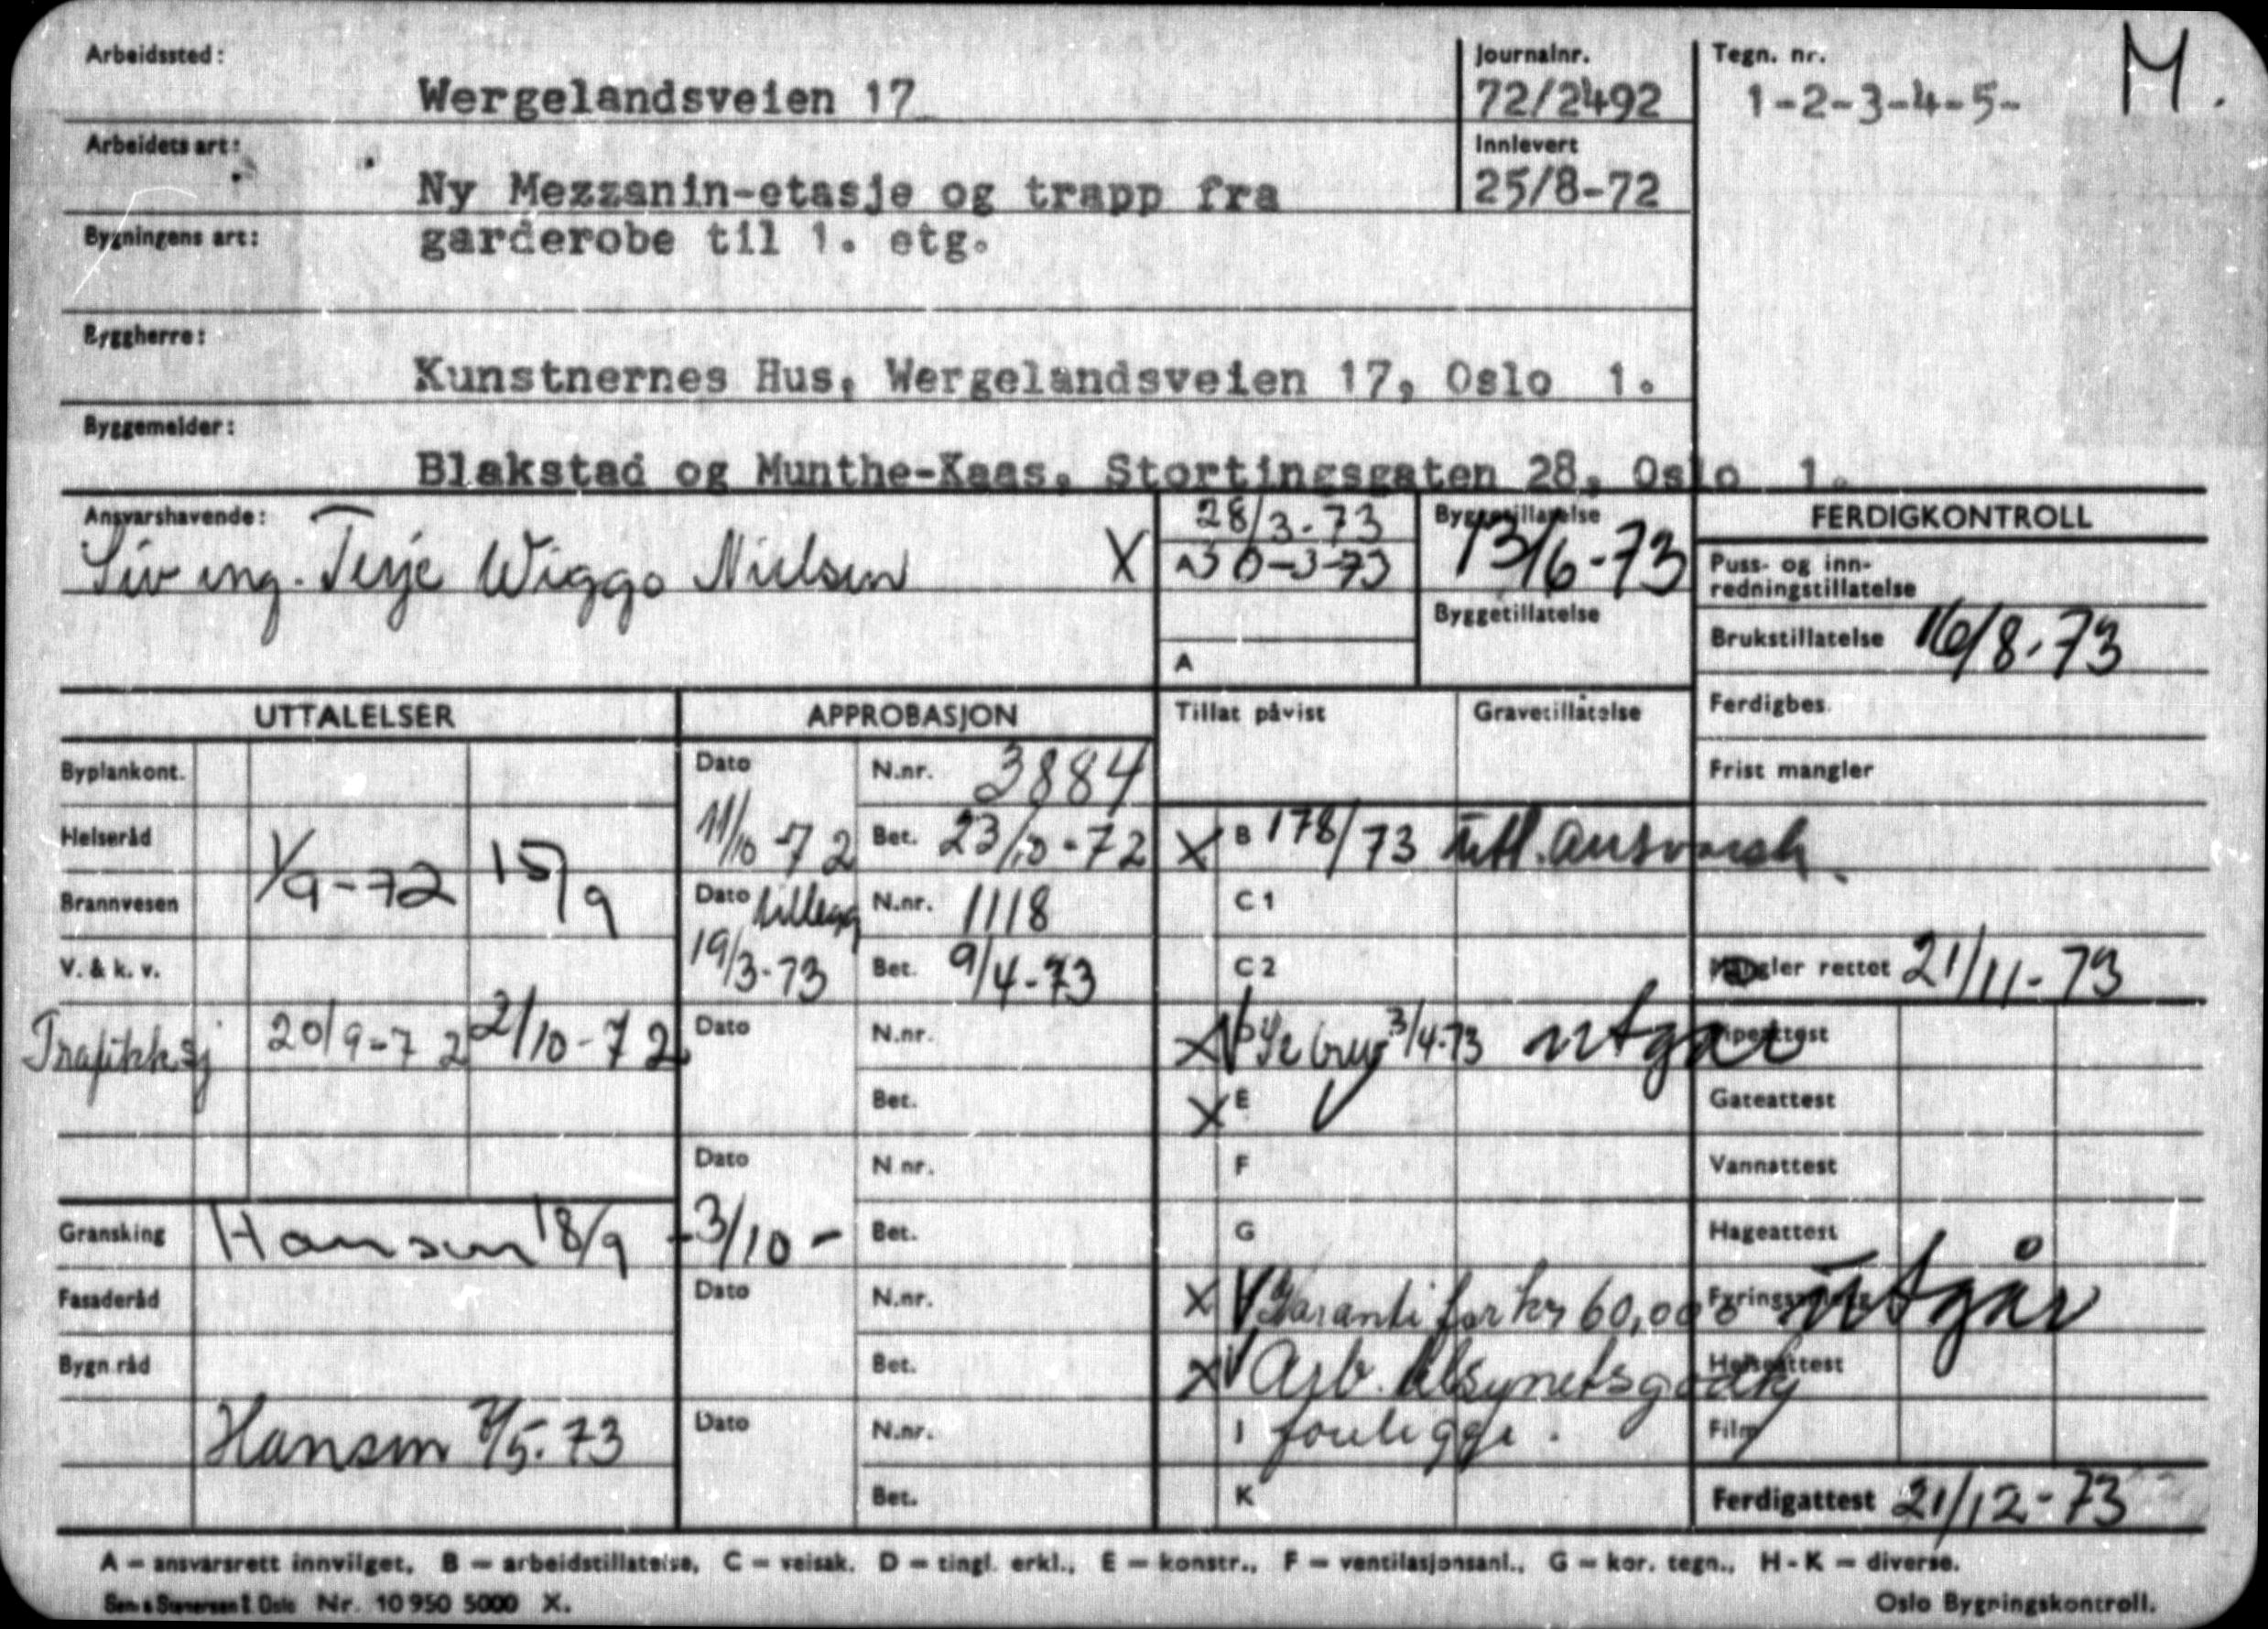 Arbeidssted:
Wergelandsveien 17
Journalnr.
72/2492
Tegn. nr.
1-2-3-4-5-
M.
Arbeidets art:
Ny Mezzanin-etasje og trapp fra
Innlevert
25/8-72
Bygningens art:
garderobe til 1. etg.
Byggherre:
Kunstnernes Hus, Wergelandsveien 17, Oslo 1.
Byggemelder:
Blakstad og Munthe-Kaas, Stortingsgaten 28, Oslo 1.
Ansvarshavende:
Siv ing. Terje Wiggo Nielsen X
28/3-73
A30-3-73
A
Byggetillatelse
13/6-73
Byggetillatelse
FERDIGKONTROLL
Puss- og inn-
redningstillatelse
Brukstillatelse 16/8-73
Ferdigbes.
Frist mangler
Mangler rettet 21/11-73
UTTALELSER
Byplankont.
Helseråd
1/9-72 15/9
Brannvesen
V. & k. v.
Trafikksj 20/9-72 2/10-72
Gransking Hansen 18/9 - 3/10 -
Fasaderåd
Bygn.råd
Hansen 7/5-73
APPROBASJON
Dato N.nr. 3884
11/10-72 Bet. 23/10-72
Dato tillegg N.nr. 1118
19/3-73 Bet. 9/4-73
Dato N.nr.
Bet.
Dato N.nr.
Bet.
Dato N.nr.
Bet.
Dato N.nr.
Bet.
Tillat påvist Gravetillatelse
X B 178/73 utl. ansvarsh.
C1
C2
X V D 3/4-73 utgår
X E V
F
G
X V Garanti for kr 60,000
X V Arb. tilsynets godkj
I foreligge.
K
Pipeattest
Gateattest
Vannattest
Hageattest
Fyringsanlegg utgår
Heisattest
Film
Ferdigattest 21/12-73
A = ansvarsrett innvilget, B = arbeidstillatelse, C = veisak. D = tingl. erkl., E = konstr., F = ventilasjonsanl., G = kor. tegn., H - K = diverse.
Nr. 10 950 5000 X.
Oslo Bygningskontroll.